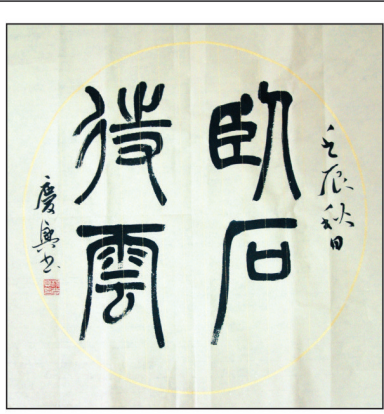 壬辰秋日
臥石
待雲
慶興书